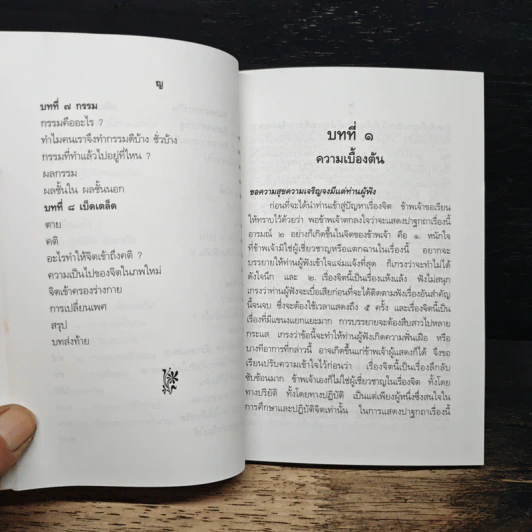 ญ
บทที่ ๗ กรรม
กรรมคืออะไร ?
ทำไมคนเราจึงทำกรรมดีบ้าง ชั่วบ้าง
กรรมที่ทำแล้วไปอยู่ที่ไหน ?
ผลกรรม
ผลชั้นใน ผลชั้นนอก
บทที่ ๘ เบ็ดเตล็ด
ตาย
คติ
อะไรทำให้จิตเข้าถึงคติ ?
ความเป็นไปของจิตในภพใหม่
จิตเข้าครองร่างกาย
การเปลี่ยนเพศ
สรุป
บทส่งท้าย
บทที่ ๑
ความเบื้องต้น
ขอความสุขความเจริญจงมีแด่ท่านผู้ฟัง
ก่อนที่จะได้นำท่านเข้าสู่ปัญหาเรื่องจิต ข้าพเจ้าขอเรียน
ให้ทราบไว้ด้วยว่า พอข้าพเจ้าตกลงใจว่าจะแสดงปาฐกถาเรื่องนี้
อารมณ์ ๒ อย่างก็เกิดขึ้นในจิตของข้าพเจ้า คือ ๑. หนักใจ
ที่ข้าพเจ้ามิใช่ผู้เชี่ยวชาญหรือแตกฉานในเรื่องนี้ อยากจะ
บรรยายให้ท่านผู้ฟังเข้าใจแจ่มแจ้งที่สุด ก็เกรงว่าจะทำไม่ได้
ดังใจนึก และ ๒. เรื่องจิตนี้เป็นเรื่องแห้งแล้ง ฟังไม่สนุก
เกรงว่าท่านผู้ฟังจะเบื่อเสียก่อนที่จะได้ติดตามฟังเรื่องอันสำคัญ
นี้จนจบ ซึ่งจะต้องใช้เวลาแสดงถึง ๕ ครั้ง และเรื่องจิตนี้เป็น
เรื่องที่มีแขนงแยกแยะมาก การบรรยายจะต้องสืบสาวไปหลาย
กระแส เกรงว่าข้อนี้จะทำให้ท่านผู้ฟังเกิดความฟั่นเฝือ หรือ
บางทีอาการที่กล่าวนี้ อาจเกิดขึ้นแก่ข้าพเจ้าผู้แสดงก็ได้ จึงขอ
เรียนปรับความเข้าใจไว้ก่อนว่า เรื่องจิตนี้เป็นเรื่องลึกลับ
ซับซ้อนมาก ข้าพเจ้าเองก็ไม่ใช่ผู้เชี่ยวชาญในเรื่องจิต ทั้งโดย
ทางปริยัติ ทั้งโดยทางปฏิบัติ เป็นแต่เพียงผู้หนึ่งซึ่งสนใจใน
การศึกษาและปฏิบัติจิตเท่านั้น ในการแสดงปาฐกถาเรื่องนี้